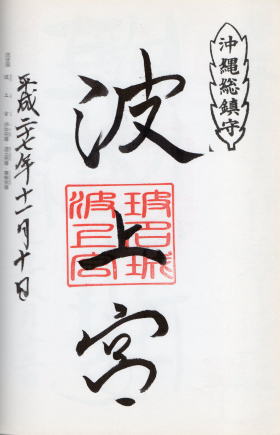 沖縄総鎮守
波上宮
波上宮
平成二七年十一月十日